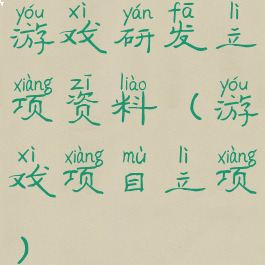 yóu xì yán fā lì
游戏研发立
xiàng zī liào yóu
项资料（游
xì xiàng mù lì xiàng
戏项目立项
）